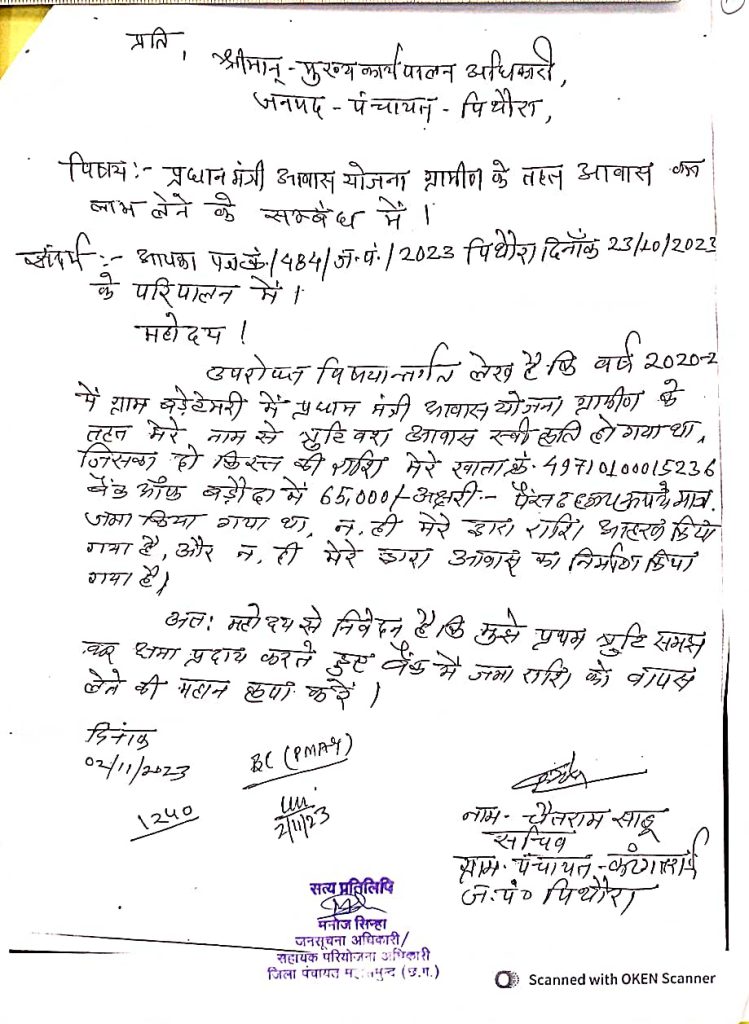 प्रति,
श्रीमान् - मुख्य कार्यपालन अधिकारी,
जनपद - पंचायत - पिथौरा,
विषय :- प्रधान मंत्री आवास योजना ग्रामीण के तहत आवास का
लाभ लेने के सम्बंध में ।
संदर्भ :- आपका पत्र क्रं./484/ज.पं./2023 पिथौरा दिनाँक 23/10/2023
के परिपालन में ।
महोदय !
उपरोक्त विषयान्तर्गत लेख है कि वर्ष 2020-2
में ग्राम बड़ेटेमरी में प्रधान मंत्री आवास योजना ग्रामीण के
तहत मेरे नाम से त्रुटि वश आवास स्वीकृति हो गया था,
जिसका दो किस्त की राशि मेरे खाता क्रं. 49710100015236
बैंक ऑफ बड़ौदा में 65,000/- अक्षरी :- पैंसठ हजार रूपये मात्र.
जमा किया गया था, न ही मेरे द्वारा राशि आहरण किया
गया है, और न ही मेरे द्वारा आवास का निर्माण किया
गया है।
अतः महोदय से निवेदन है कि मुझे प्रथम त्रुटि समझ
कर क्षमा प्रदाय करते हुए बैंक में जमा राशि को वापस
लेने की महान कृपा करें ।
दिनांक
02/11/2023
BC (PMAY)
1240
2/11/23
नाम - चैतराम साहू
सचिव
ग्राम पंचायत -
ज.पं० पिथौरा
सत्य प्रतिलिपि
मनोज सिन्हा
जनसूचना अधिकारी/
सहायक परियोजना अधिकारी
जिला पंचायत महासमुन्द (छ.ग.)
Scanned with OKEN Scanner